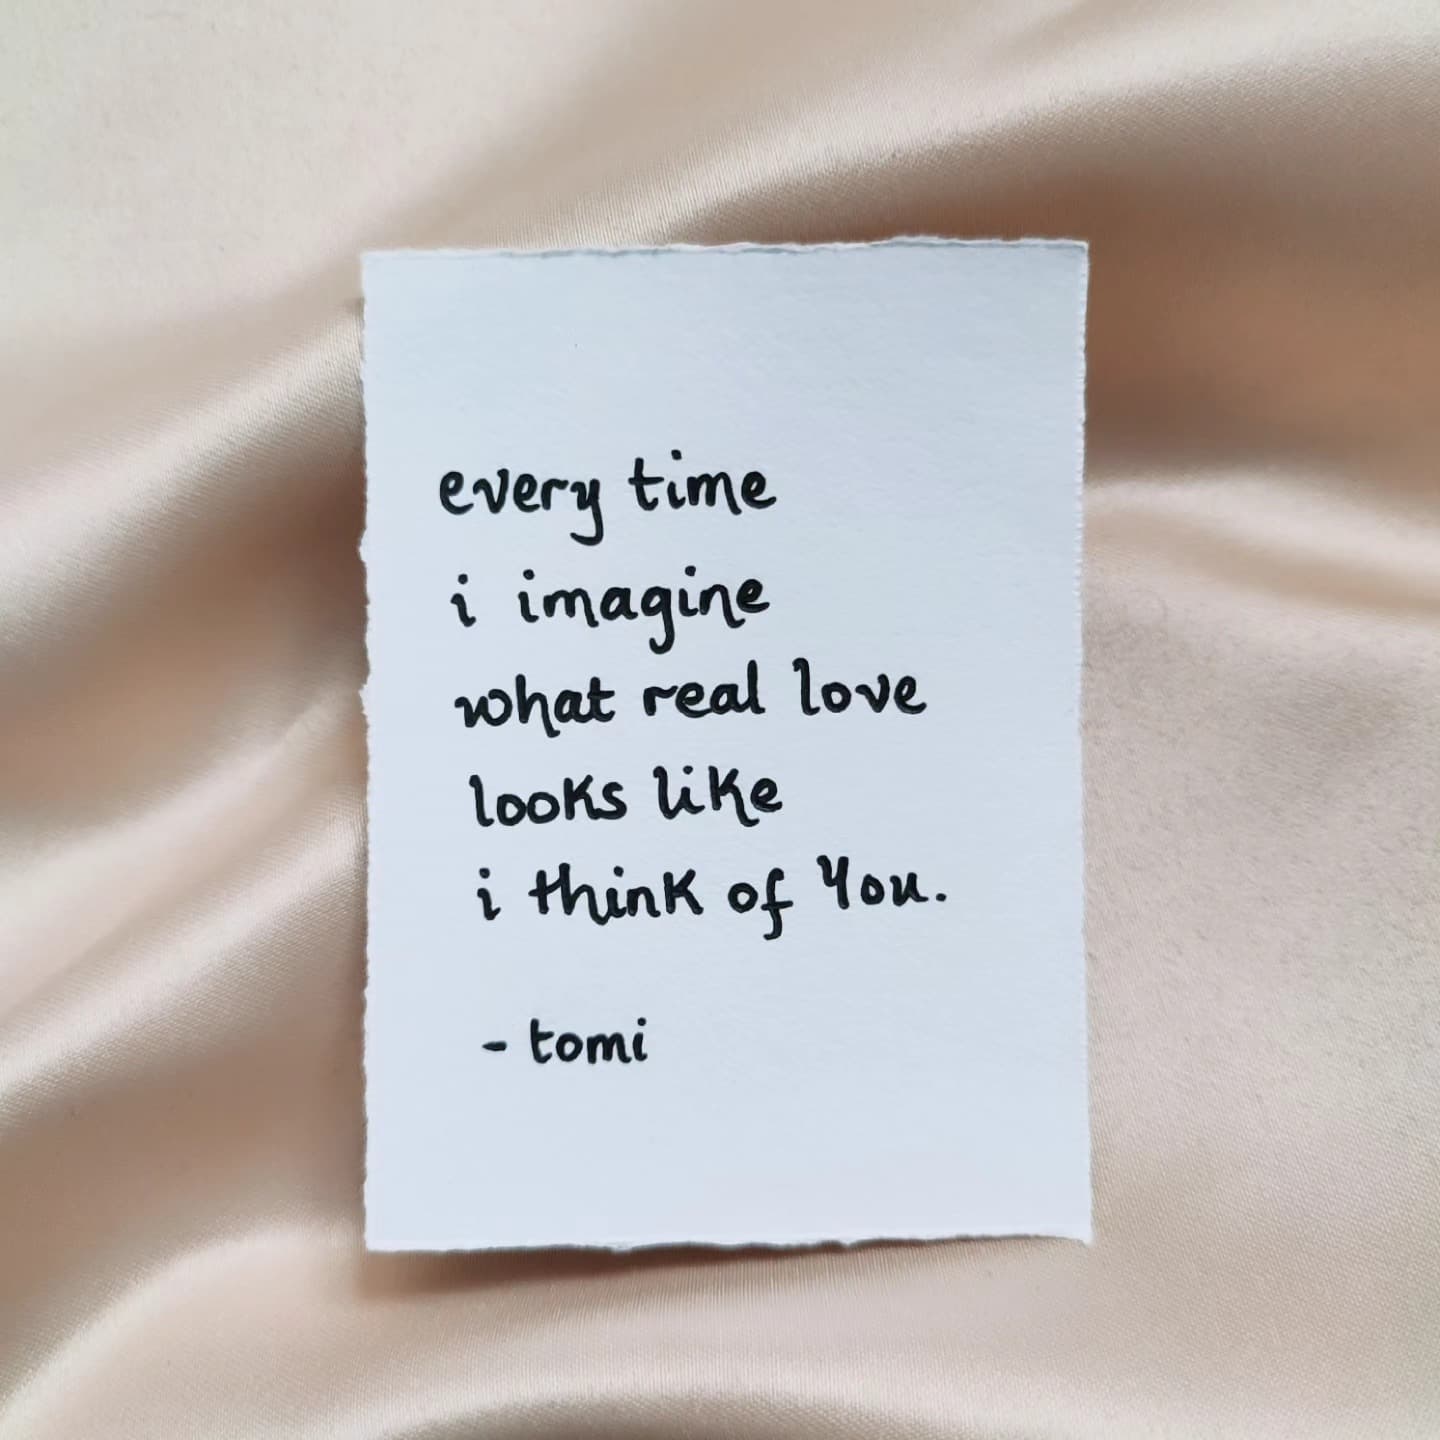 every time
i imagine
what real love
looks like
i think of You.
- tomi